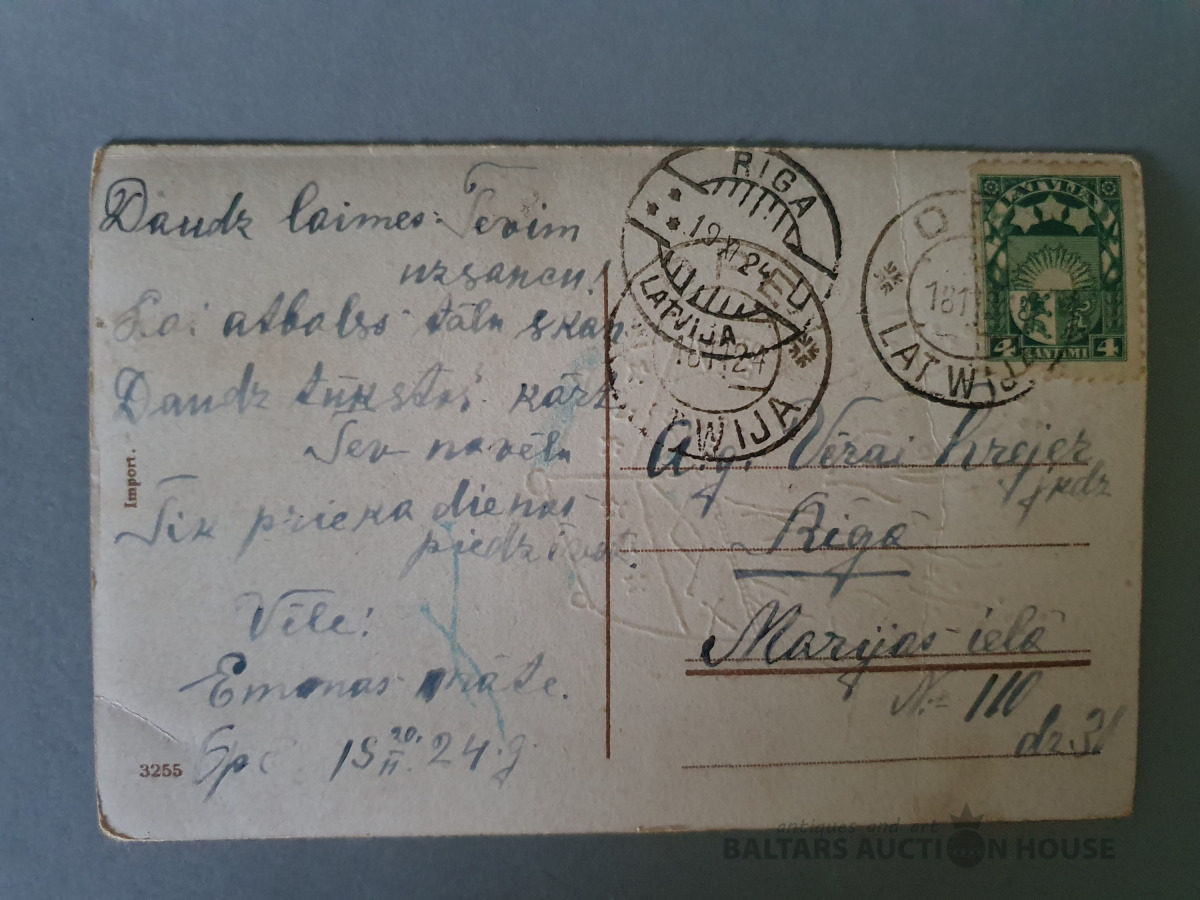 Daudz laimes Tevim
uzsaucu!
Lai atbalss tālu skan
Daudz tūkstoš kārt
Tev novēlu
Tik prieka dienas
piedzīvot.
Vēle:
Emmas māte.
19 20/II 24.g.
Import.
3255
RIGA
19 XI 24
LATVIJA
18 11 24
LATWIJA
1811
LATWIJA
LATVIJA
4 SANTIMI 4
A.g. Vērai Krejer
jkdz
Rīgā
Marijas ielā
№ 110
dz. 31
antiques and art
BALTARS AUCTION HOUSE